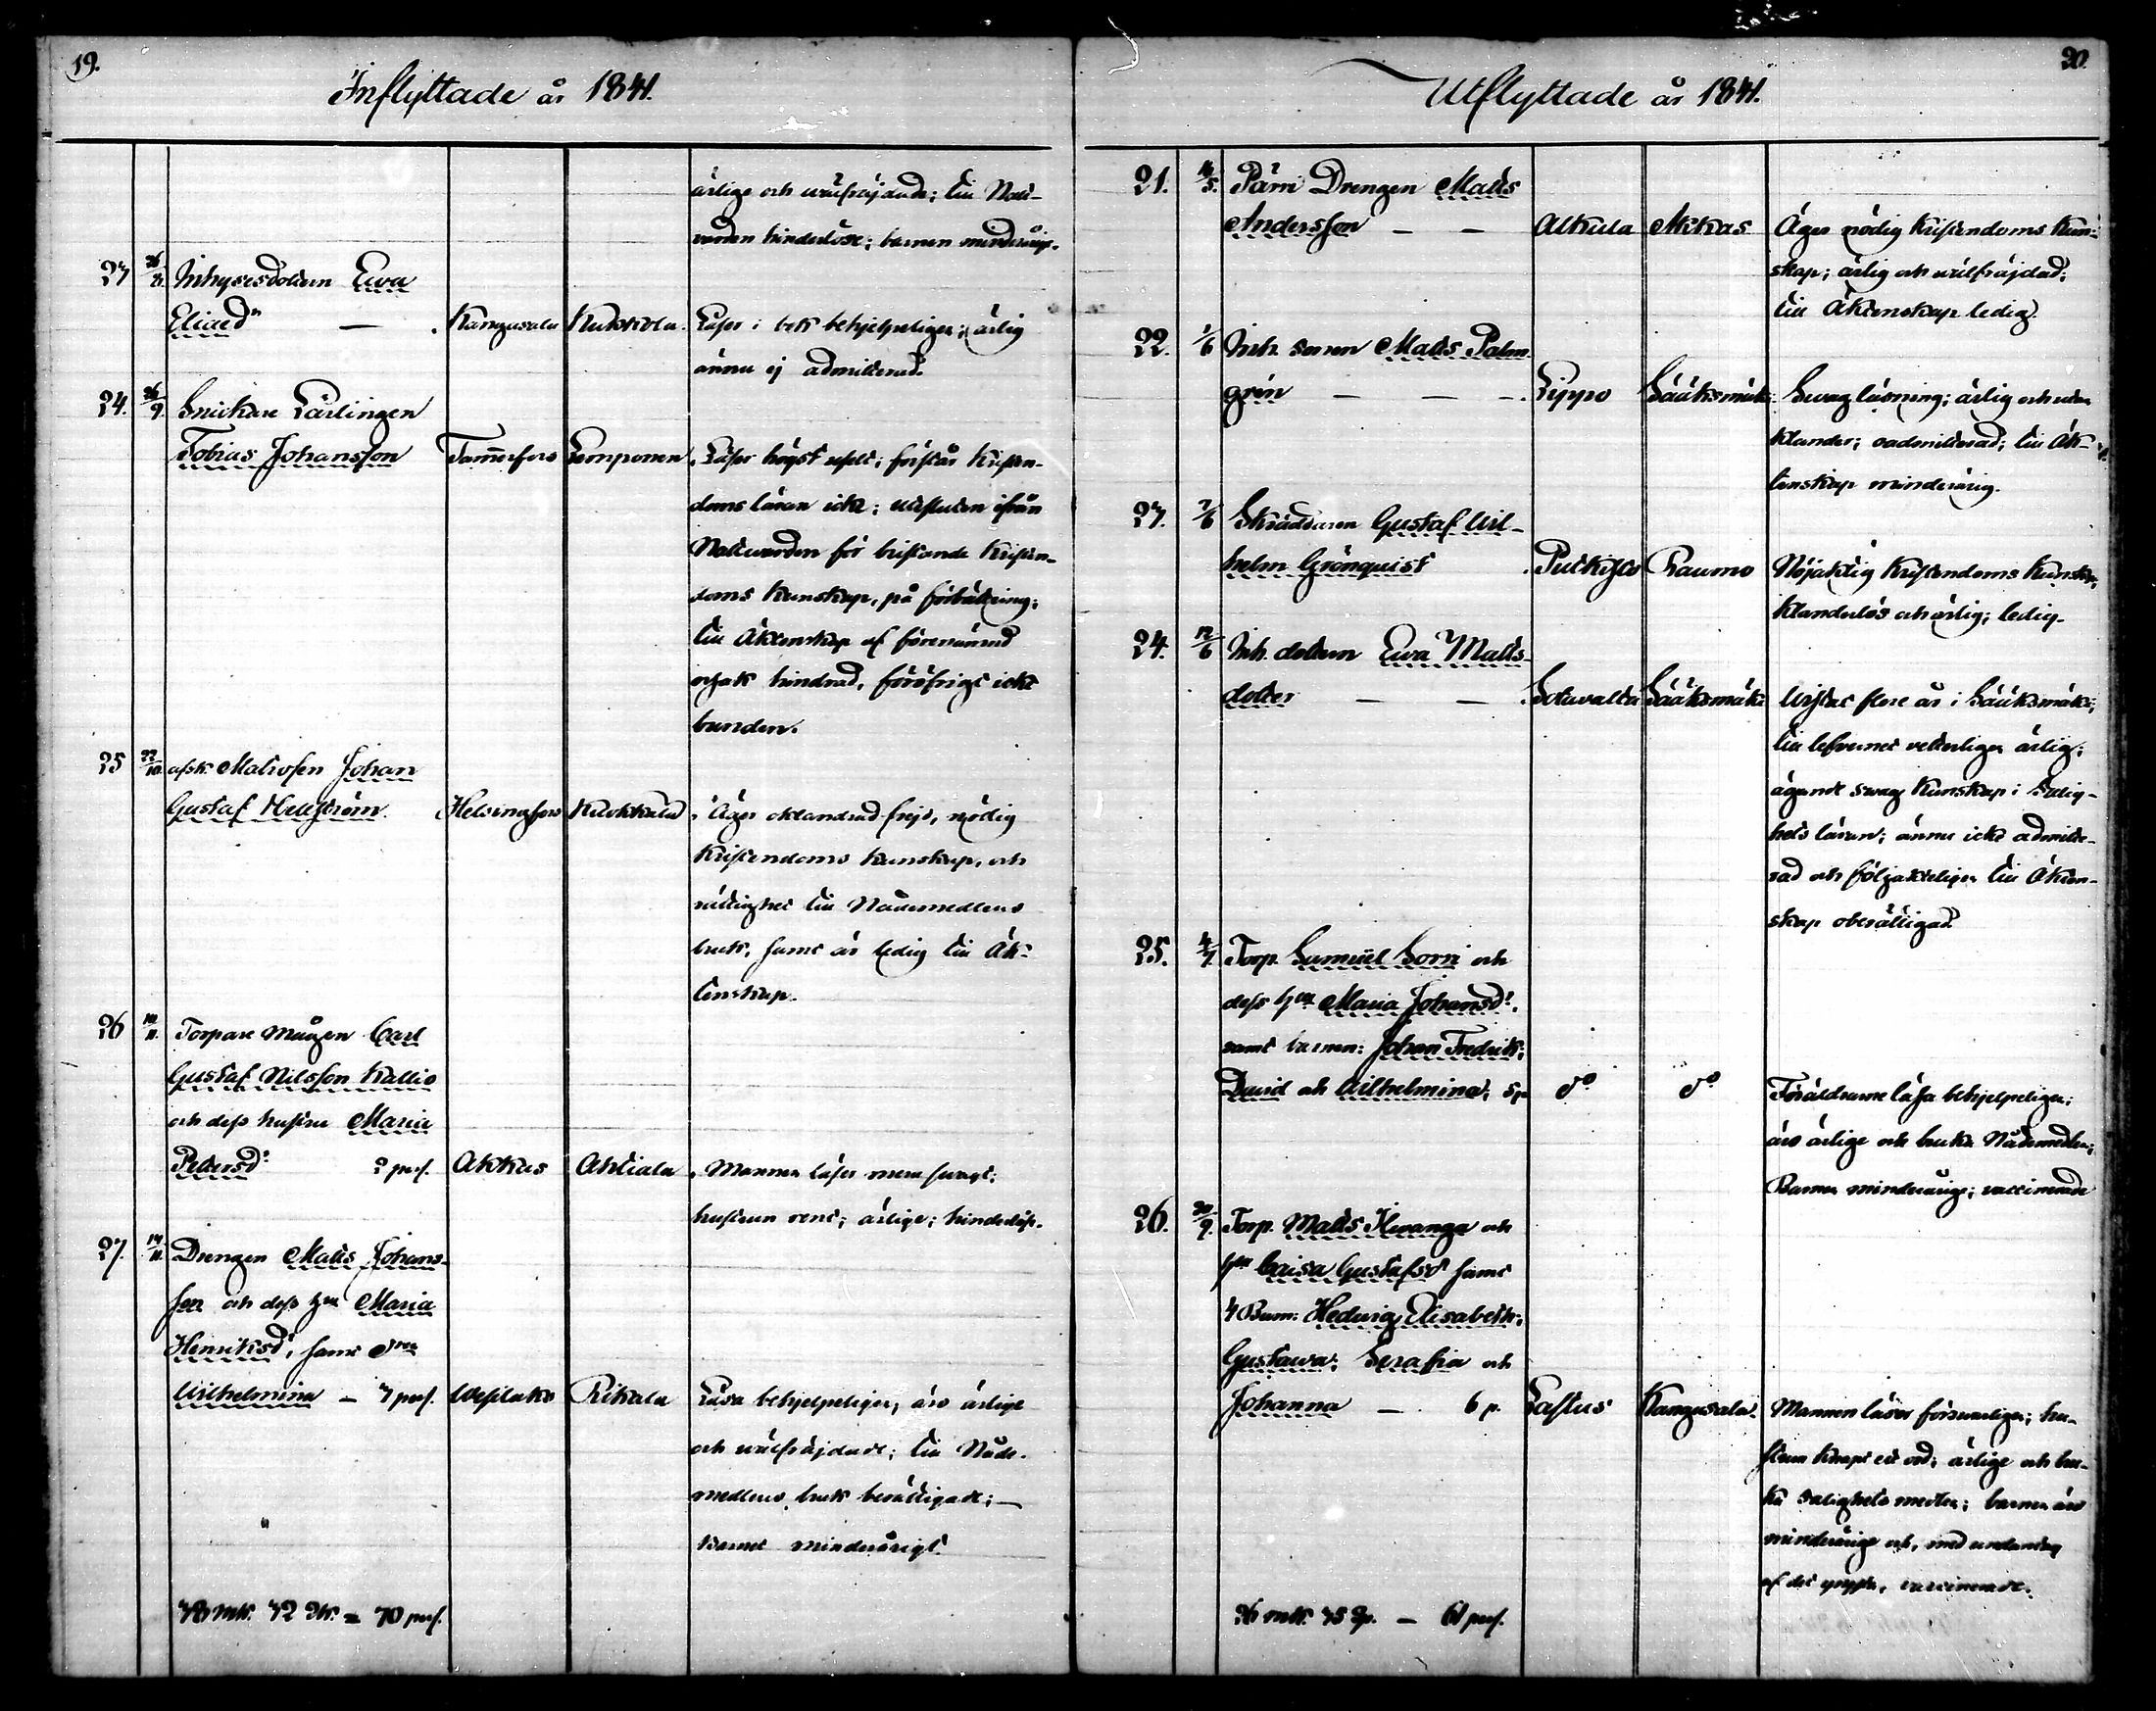 19.
Inflyttade år 1841.
ärlige och wälfräjdade; till Natt-
varden hinderlöse; barnen minderårige.
23 26/8. Inhysesdottern Eva
Eliaed:r — . Kangasala Kukkola. Läser i bok behjelpeligen; ärlig
ännu ej admitterad.
24. 26/9. Snickare Lärlingen
Tobias Johansson Tammerfors Lemponen. Läser högst uselt; förstår Kristen-
doms läran icke; utsluten ifrån
Nattvarden för bristande Kristen-
doms kunskap, på förbättring;
till Äktenskap af förenämnd
orsak hindrad, föröfrigt icke
bunden.
25 22/10. afsk. Matrosen Johan
Gustaf Hellström. Helsingfors . Äger oklandrad frejd, nödig
Kristendoms kunskap, och
rättighet till Nådemedlens
bruk, samt är ledig till Äk-
tenskap.
26 10/11. Torpare mågen Carl
Gustaf Nilsson Kallio
och dess hustru Maria
Pettersd:r 2 pers. Akkas Ahtiala . Mannen läser mera svagt;
hustrun rent; ärlige; hinderlöse.
27. 14/11. Drengen Matts Johans-
son och dess h:u Maria
Henriksd:r, samt d:ren
Wilhelmina — 3 pers. Wesilaks Rikala Läsa behjelpeligen, äro ärlige
och wälfräjdade; till Nåde-
medlens bruk berättigade; —
Barnet minderårigt.
38 mk. 32 Qk. = 70 pers.
20.
Utflyttade år 1841.
21. 16/5. Pärri Drengen Matts
Andersson — — Alkula Akkas Äger nödig Kristendoms kun-
skap; ärlig och wälfräjdad;
till Äktenskap ledig.
22. 1/6 Inh. sonen Matts Palm
grén — — —. Lippo Sääksmäki. Swag läsning; ärlig och utan
klander; oadmitterad; till Äk-
tenskap minderårig.
23. 7/6 Skräddaren Gustaf Wil-
helm Grönquist . Raumo Nöjaktig Kristendoms kunskap,
klanderlös och ärlig; ledig.
24. 12/6 Inh. dottern Eva Matts-
dotter — —. Sotavalta Sääksmäki Wistats flere år i Sääksmäki;
till lefvernet veterligen ärlig;
ägande swag kunskap i Salig-
hets läran; ännu icke admitte-
rad och följakteligen till Äkten-
skap oberättigad.
25. 4/7 Torp. Samuel Sorri och
dess h:u Maria Johansd:r.
samt barnen: Johan Fredrik;
David och Wilhelmina; 5 p. d:o d:o Föräldrarne läsa behjelpeligen;
äro ärlige och bruka Nådemedlen;
Barnen minderårige; vaccinerade
26. 20/9. Torp. Matts Hwanga och
h:u Caisa Gustafsd:r samt
4 Barn: Hedwig Elisabeth;
Gustawa; Serafia och
Johanna — 6 p. Lastus Kangasala. Mannen läser försvarligen; hu-
strun knapt ett ord; ärlige och bru-
ka salighets medlen; barnen äro
minderårige och, med undantag
af det yngsta, vaccinerade.
26 mk. 35 Qp. — 61 pers.